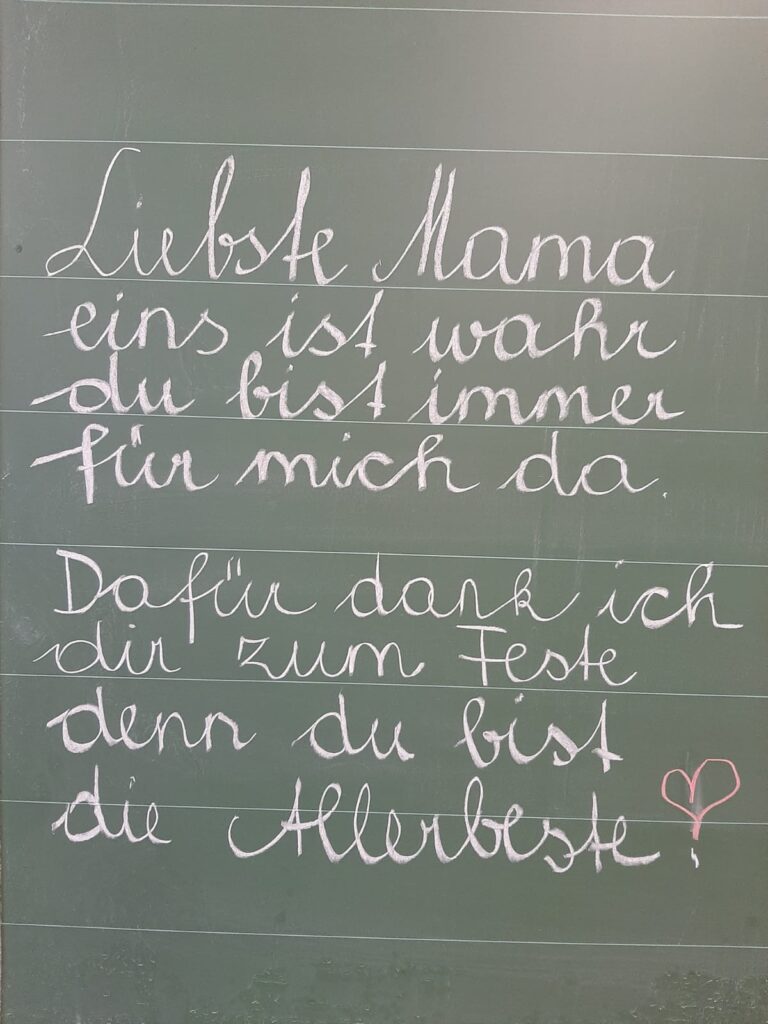 Liebste Mama
eins ist wahr
du bist immer
für mich da.
Dafür dank ich
dir zum Feste
denn du bist
die Allerbeste!